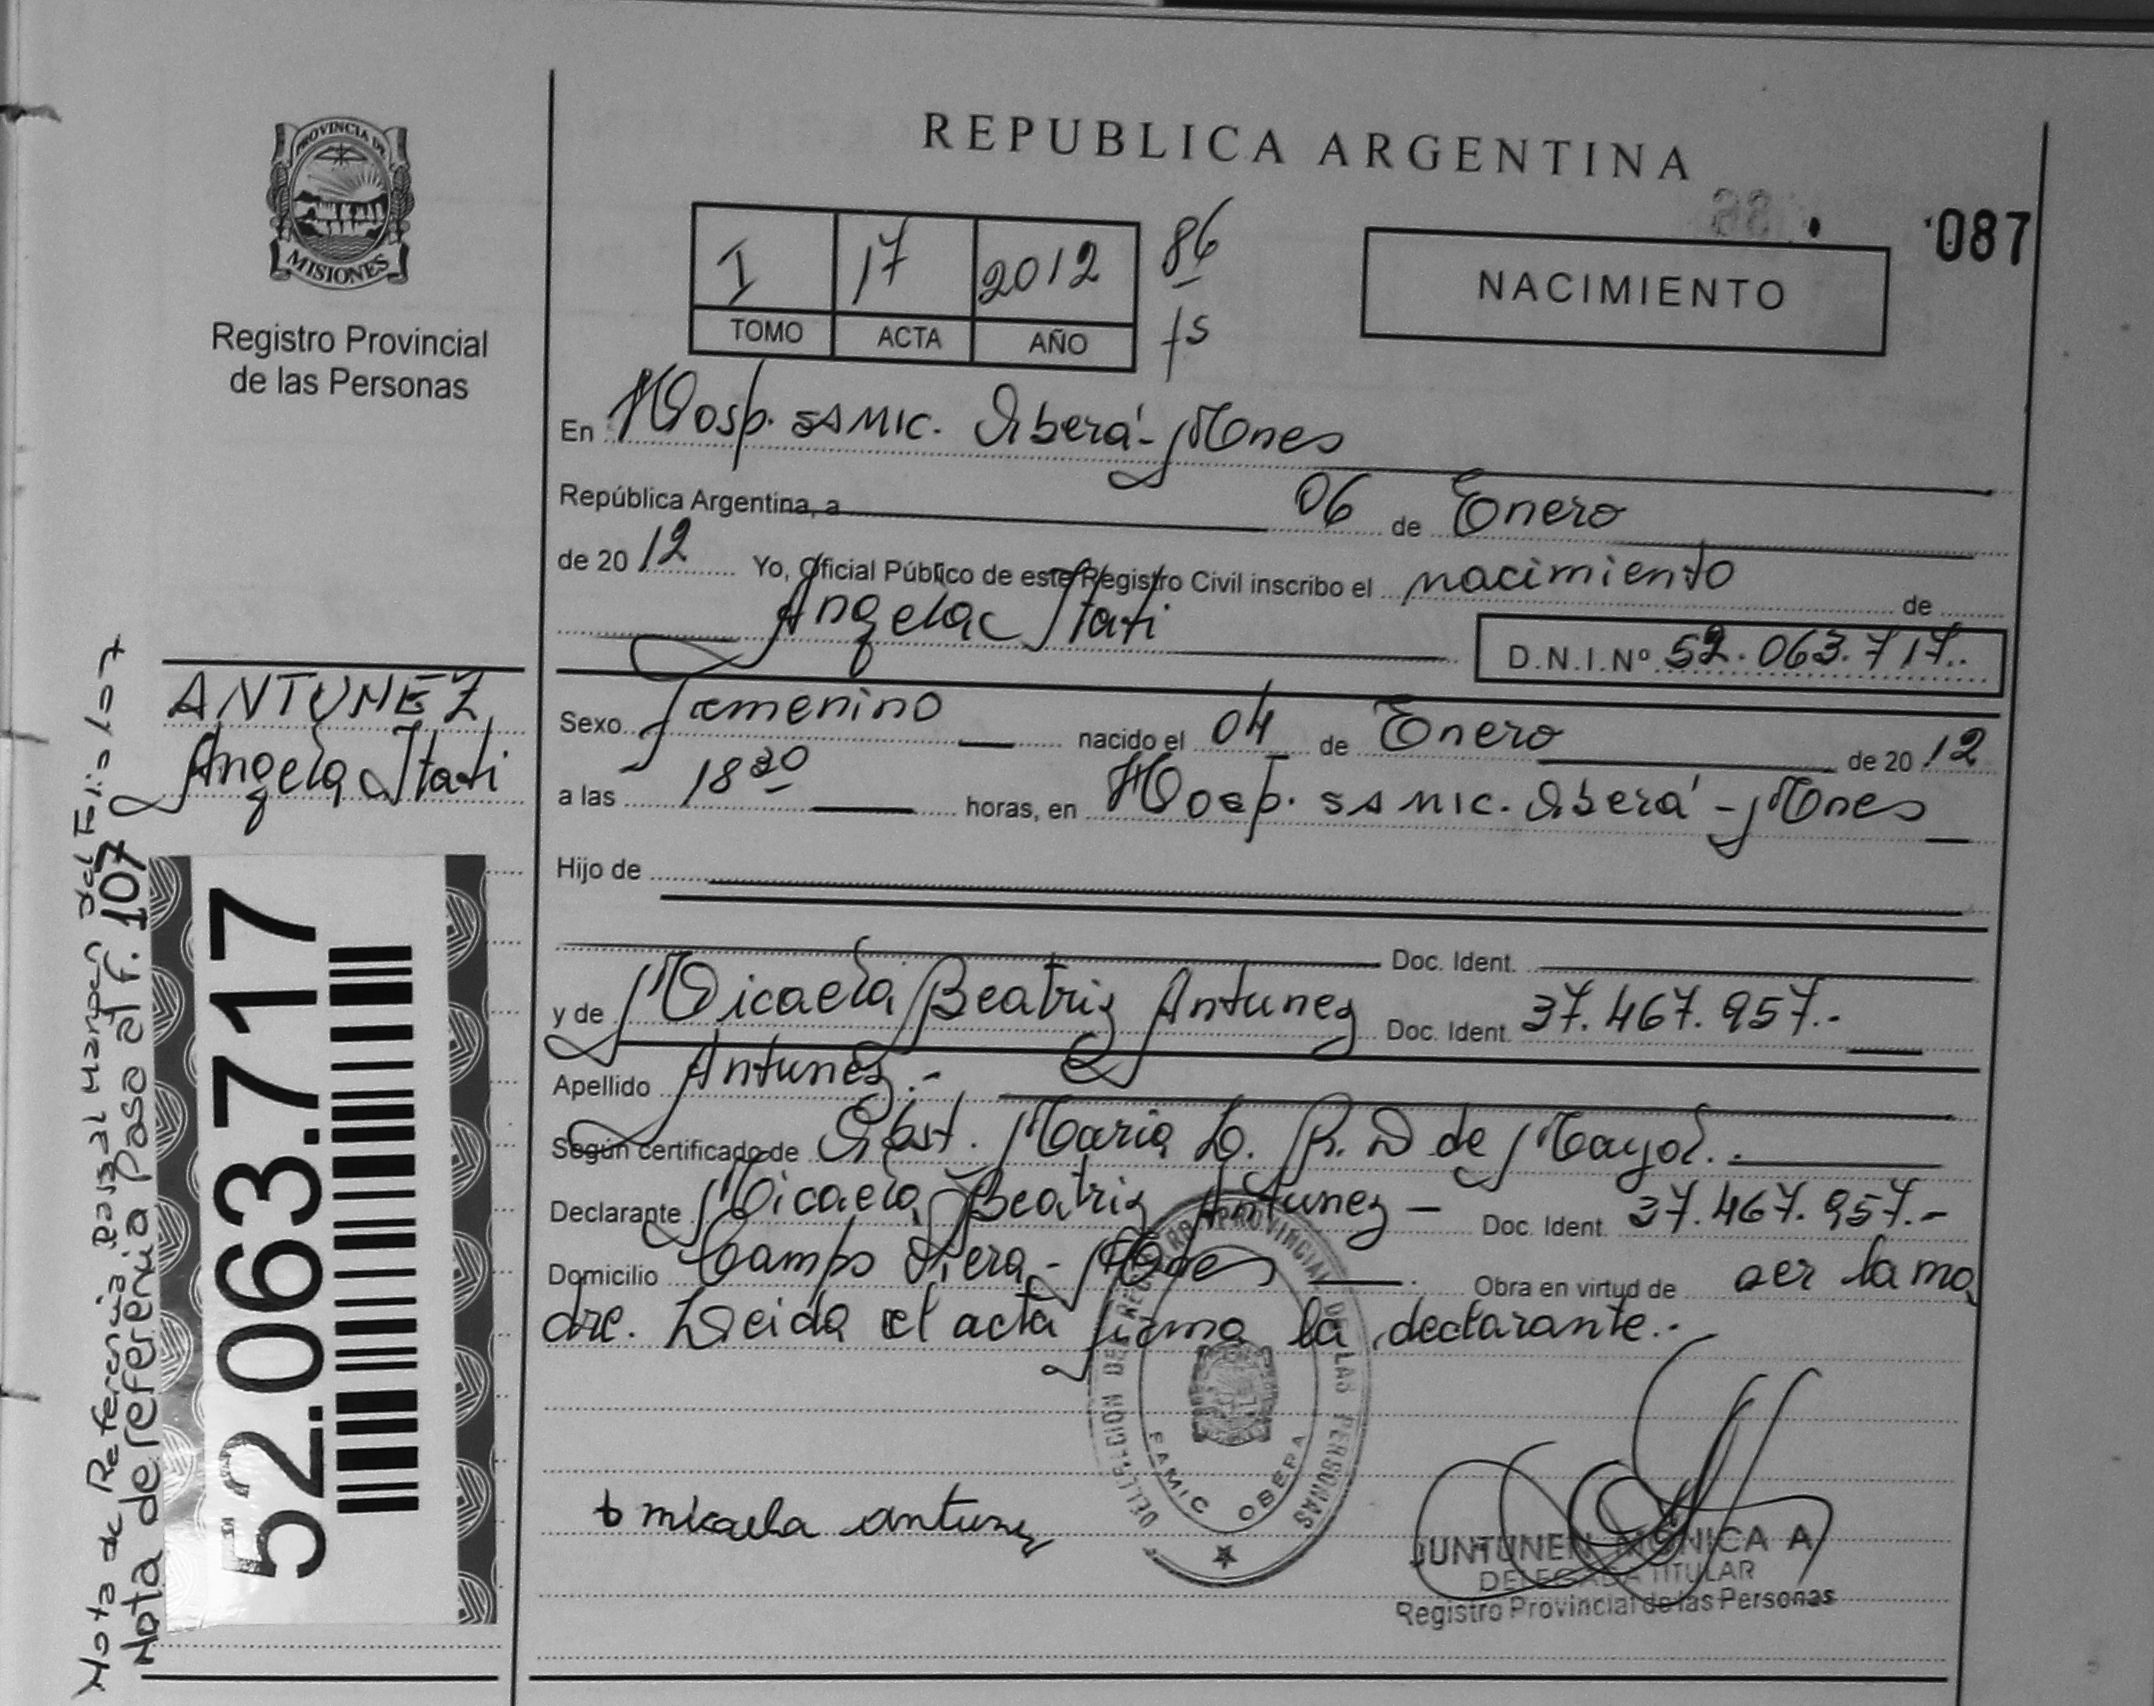 PROVINCIA DE
MISIONES
Registro Provincial
de las Personas
REPUBLICA ARGENTINA
087
I 17 2012 86
TOMO ACTA AÑO fs
NACIMIENTO
En Hosp. SAMIC. Oberá - Mnes
República Argentina, a 06 de Enero
de 2012 Yo, Oficial Público de este Registro Civil inscribo el nacimiento de
Angela Itati D.N.I.Nº 52.063.717.
ANTUNEZ
Angela Itati
Sexo femenino nacido el 04 de Enero de 2012
a las 18 horas, en Hosp. SAMIC. Oberá - Mnes
Hijo de
Doc. Ident.
y de Micaela Beatriz Antunez Doc. Ident. 37.467.957.-
Apellido Antunez.-
Según certificado de Obst. Maria L. R. D de Mayol.
Declarante Micaela Beatriz Antunez - Doc. Ident. 37.467.957.-
Domicilio Campo Viera - Mnes Obra en virtud de ser la ma
dre. Leida el acta firma la declarante.-
micaela antunez
DELEGACION DEL REGISTRO PROVINCIAL DE LAS PERSONAS
SAMIC OBERA
JUNTUNEN MONICA A
DELEGADA TITULAR
Registro Provincial de las Personas
52.063.717
Nota de Referencia pasa al Margen del Folio 107
Nota de referencia Pasa al F. 107